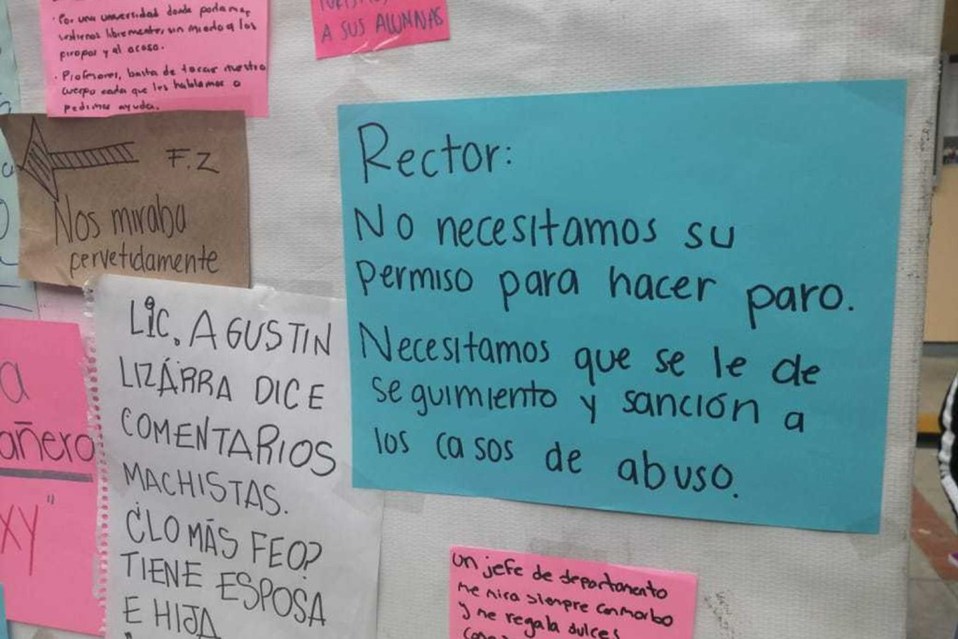 · Por una universidad donde podamos
vestirnos libremente, sin miedo a los
piropos y al acoso.
· Profesores, basta de tocar nuestro
cuerpo cada que les hablamos o
pedimos ayuda.
A SUS ALUMNAS
F.Z
Nos miraba
pervetidamente
Rector:
No necesitamos su
permiso para hacer paro.
Necesitamos que se le de
seguimiento y sanción a
los casos de abuso.
LIC. AGUSTIN
LIZÁRRA DICE
COMENTARIOS
MACHISTAS.
¿LO MÁS FEO?
TIENE ESPOSA
E HIJA
a
añero
XY"
Un jefe de departamento
me mira siempre con morbo
y me regala dulces